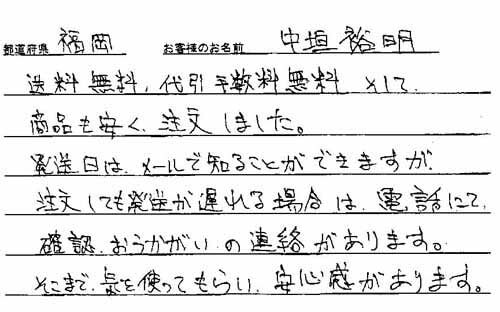 都道府県 福岡 お客様のお名前 中垣裕明
送料無料、代引手数料無料 そして、
商品も安く、注文しました。
発送日は、メールで知ることができますが、
注文しても発送が遅れる場合は、電話にて、
確認、おうかがい の連絡があります。
そこまで、気を使ってもらい、安心感があります。